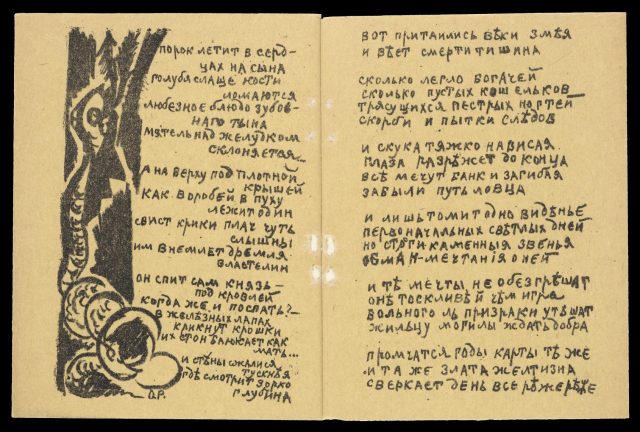 порок летит в серд-
цах на сына
голубя слаще кости
ломаются
любезное блюдо зубов-
наго тына
мятель над желудком
склоняется...
а на верху под плотной
крышей
как воробей в пуху
лежит один
свист крики плач чуть
слышны
им внемлет дремля
властелин
он спит сам князь —
под кровлей
когда же и поспать?—
в желѣзных лапах
крикнут крошки
их стон баюкает как
мать...
и стѣны сжалися
тускнѣя
гдѣ смотрит зорко
глубина
О.Р.
вот притаились вѣки змѣя
и вѣет смерти тишина
сколько легло богачей
сколько пустых кошельков
трясущихся пестрых ногтей
скорби и пытки слѣдов
и скука тяжко нависая
глаза разрѣжет до конца
всѣ мечут банк и загибая
забыли путь ловца
и лишь томит одно видѣнье
первоначальных свѣтлых дней
но строги каменныя звенья
обман-мечтания о ней
и тѣ мечты не обезгрѣшат
онѣ тоскливѣй чѣм игра
больного ль призраки утѣшат
жильцу могилы ждать добра
промчатся годы карты тѣ же
и та же злата желтизна
сверкает день все рѣже рѣже